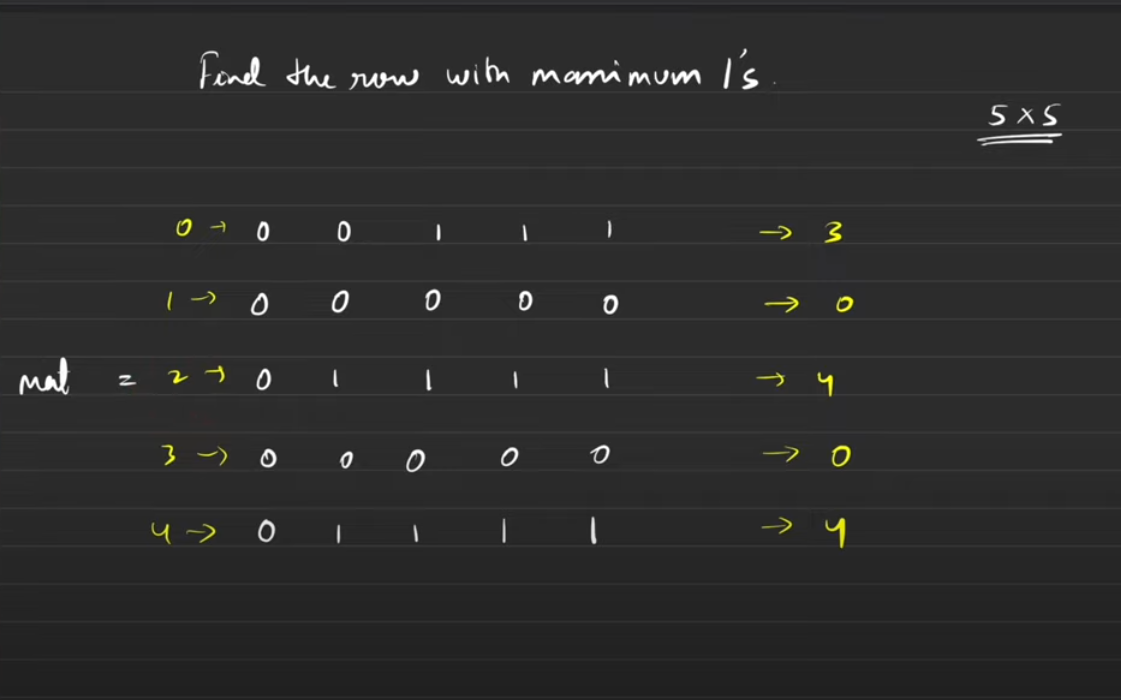 Find the row with maximum 1's.
5 x 5
0 → 0 0 1 1 1 → 3
1 → 0 0 0 0 0 → 0
mat = 2 → 0 1 1 1 1 → 4
3 → 0 0 0 0 0 → 0
4 → 0 1 1 1 1 → 4